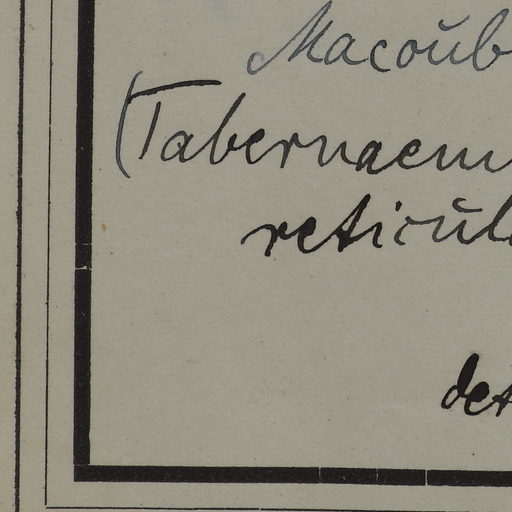 Macoub
(Tabernaem
reticul
det